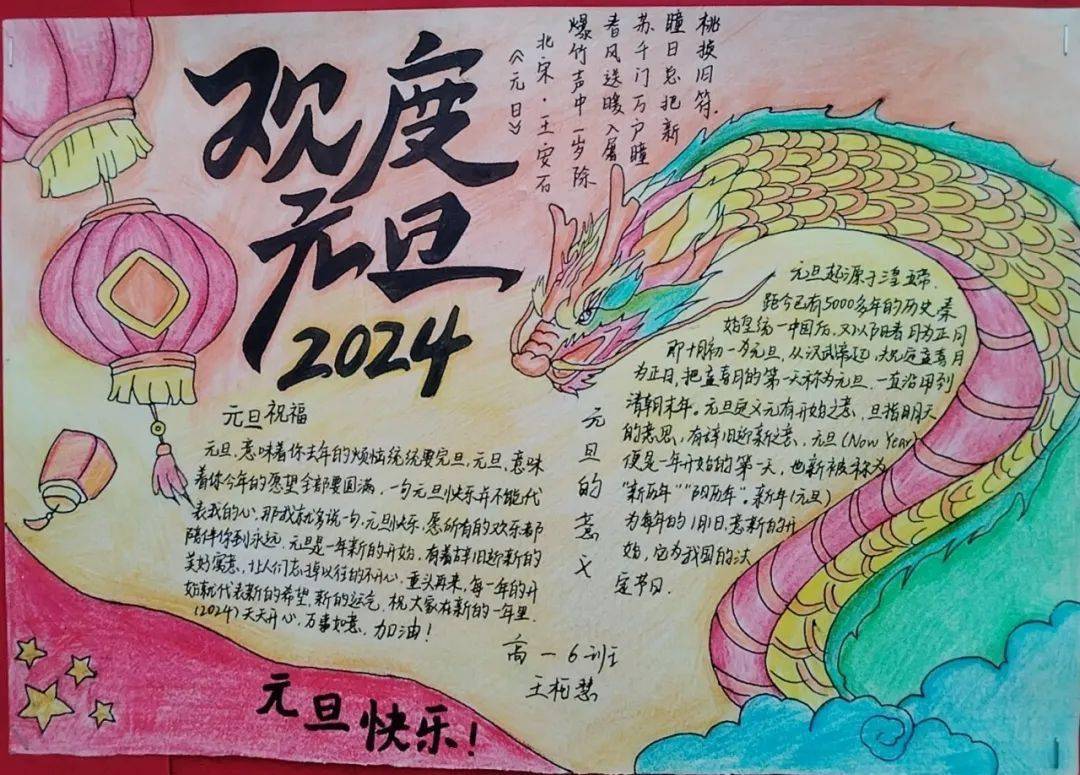 欢度
元旦
2024
《元日》
北宋·王安石
爆竹声中一岁除
春风送暖入屠
苏千门万户瞳
瞳日总把新
桃换旧符.
元旦祝福
元旦,意味着你去年的烦恼统统要完旦,元旦,意味
着你今年的愿望全部要圆满,一句元旦快乐并不能代
表我的心,那我就多说一句,元旦快乐,愿所有的欢乐都
陪伴你到永远,元旦是一年新的开始,有着辞旧迎新的
美好寓意,让人们忘掉以往的不开心,重头再来,每一年的开
始就代表新的希望,新的运气,祝大家在新的一年里.
(2024)天天开心,万事如意,加油!
元旦的意义
元旦起源于三皇五帝.
距今已有5000多年的历史.秦
始皇统一中国后,又以阳春月为正月
即十月初一为元旦,从汉武帝起,规定孟春月
为正月,把孟春月的第一天称为元旦,一直沿用到
清朝末年。元旦定义元有开始之意,旦指明天
的意思,有辞旧迎新之意,元旦(Now Year)
便是一年开始的第一天,也新被称为
"新历年""阴历年"。新年(元旦)
为每年的1月1日,意新的开
始,它为我国的法
定节日.
高一6班
王
元旦快乐!